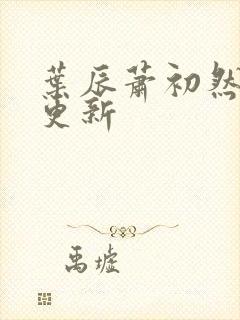 葉辰蕭初然
更新
禹墟